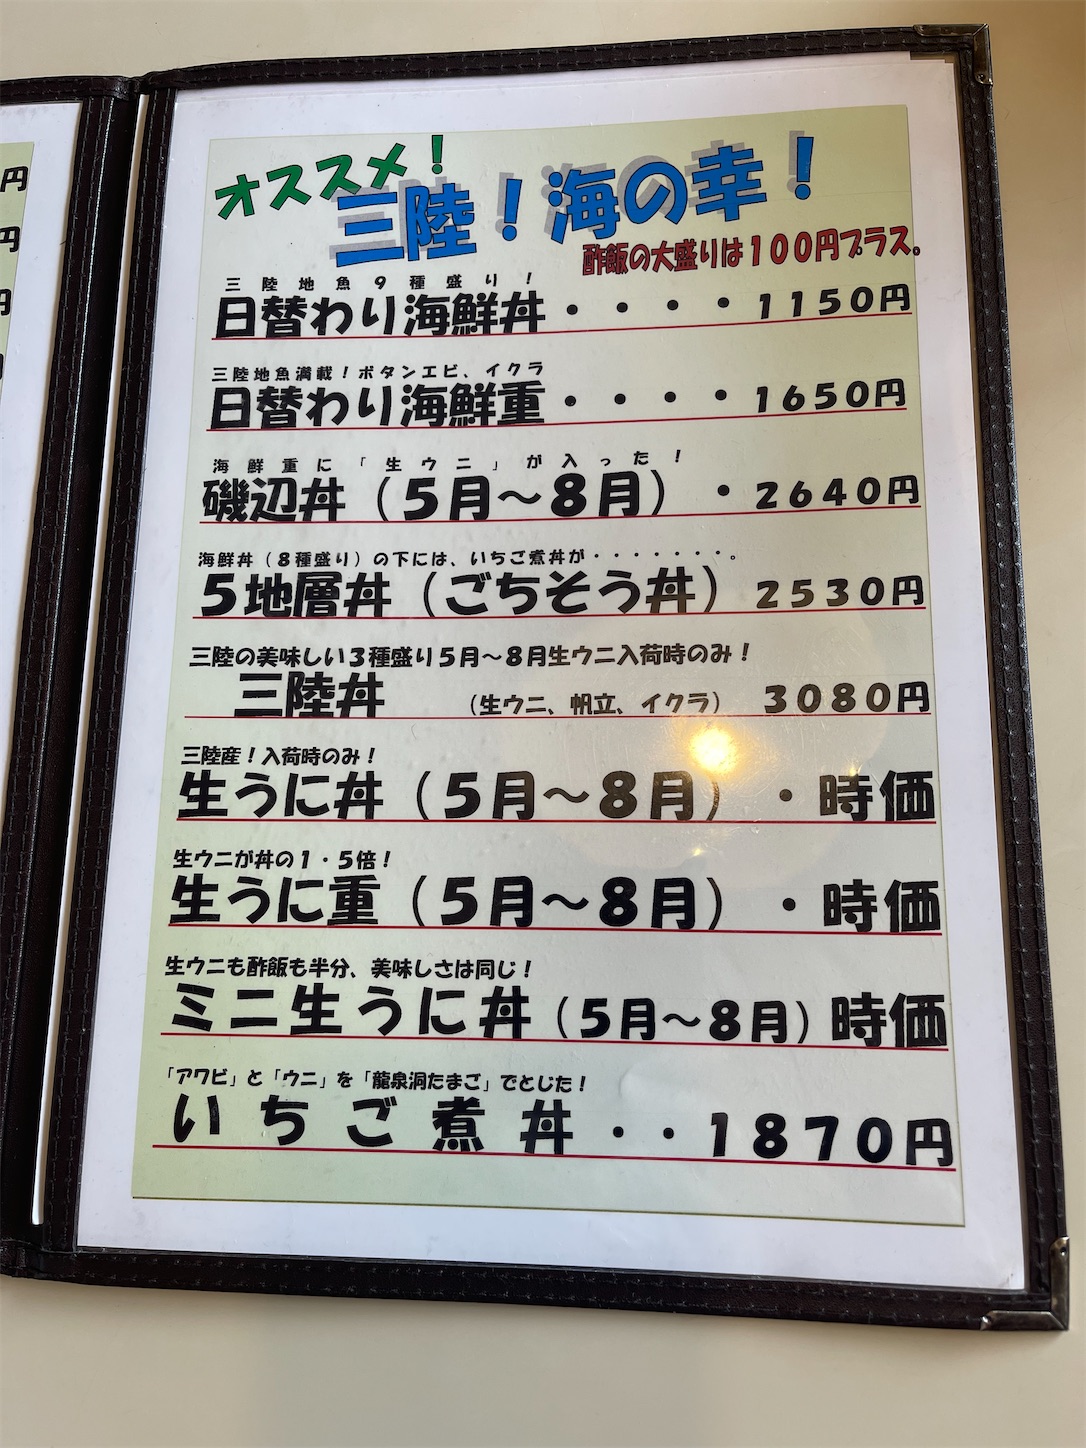 オススメ！
三陸！海の幸！
酢飯の大盛りは１００円プラス。
三陸地魚９種盛り！
日替わり海鮮丼・・・・１１５０円
三陸地魚満載！ボタンエビ、イクラ
日替わり海鮮重・・・・１６５０円
海鮮重に「生ウニ」が入った！
磯辺丼（５月～８月）・２６４０円
海鮮丼（８種盛り）の下には、いちご煮丼が・・・・・・・。
５地層丼（ごちそう丼）２５３０円
三陸の美味しい３種盛り５月～８月生ウニ入荷時のみ！
三陸丼　（生ウニ、帆立、イクラ）　３０８０円
三陸産！入荷時のみ！
生うに丼（５月～８月）・時価
生ウニが丼の１・５倍！
生うに重（５月～８月）・時価
生ウニも酢飯も半分、美味しさは同じ！
ミニ生うに丼（５月～８月）時価
「アワビ」と「ウニ」を「龍泉洞たまご」でとじた！
いちご煮丼・・１８７０円
円
円
円